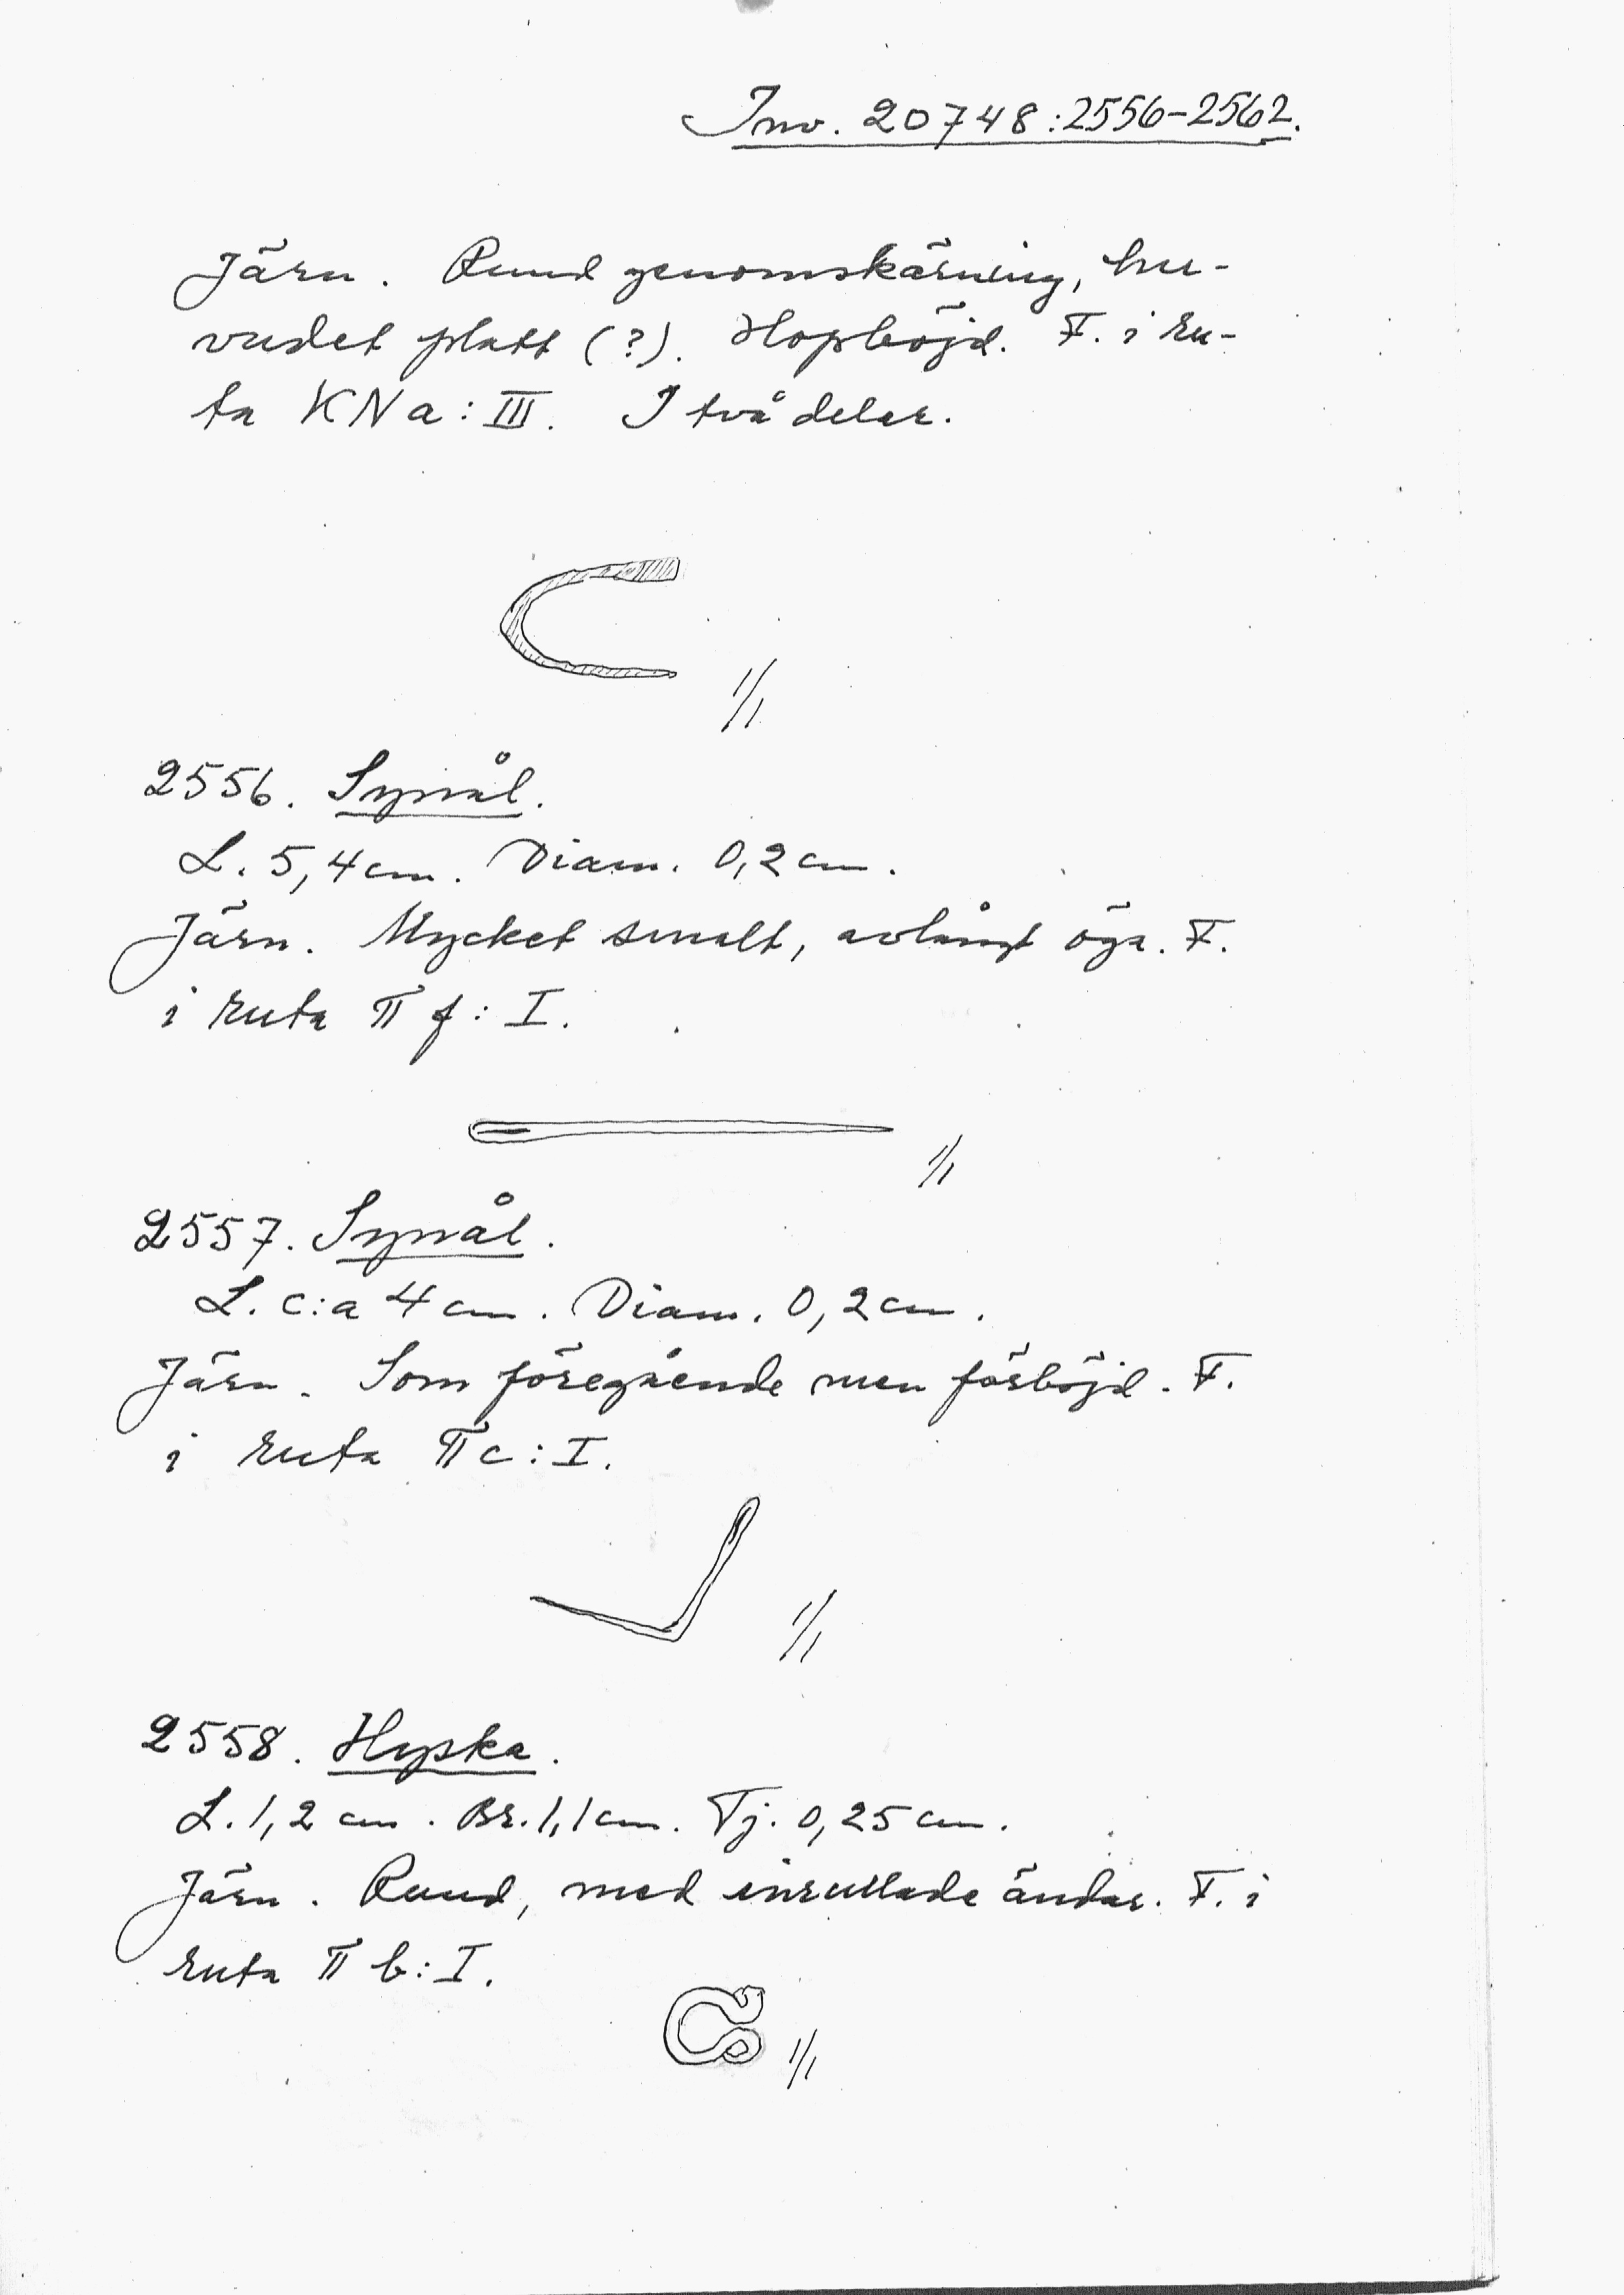 Inv. 20748:2556-2562.
Järn. Rund genomskärning, hu-
vudet platt (?). Hopböjd. F. i ru-
ta KNa: III. I två delar.
1/1
2556. Synål.
L. 5,4 cm. Diam. 0,2 cm.
Järn. Mycket smalt, avlångt öga. F.
i ruta Πf: I.
1/1
2557. Synål.
L. c:a 4 cm. Diam. 0,2 cm.
Järn. Som föregående men förböjd. F.
i ruta Πc: I.
1/1
2558. Hyska.
L. 1,2 cm. Br. 1,1 cm. Tj. 0,25 cm.
Järn. Rund, med inrullade ändar. F. i
ruta Πb: I.
1/1